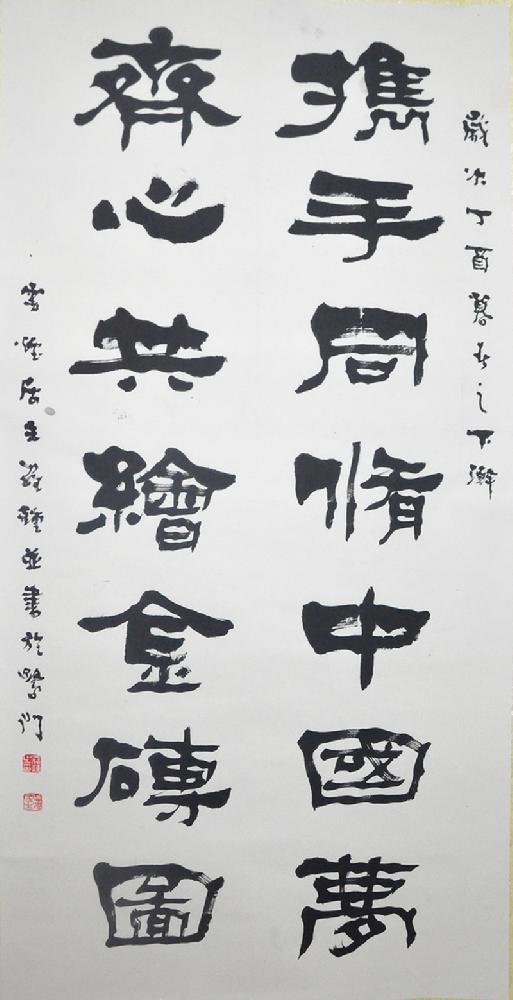 歲次丁酉暮春之下澣
攜手同脩中國夢
齊心共繪金磚圖
居主 鍾並書於鷺門